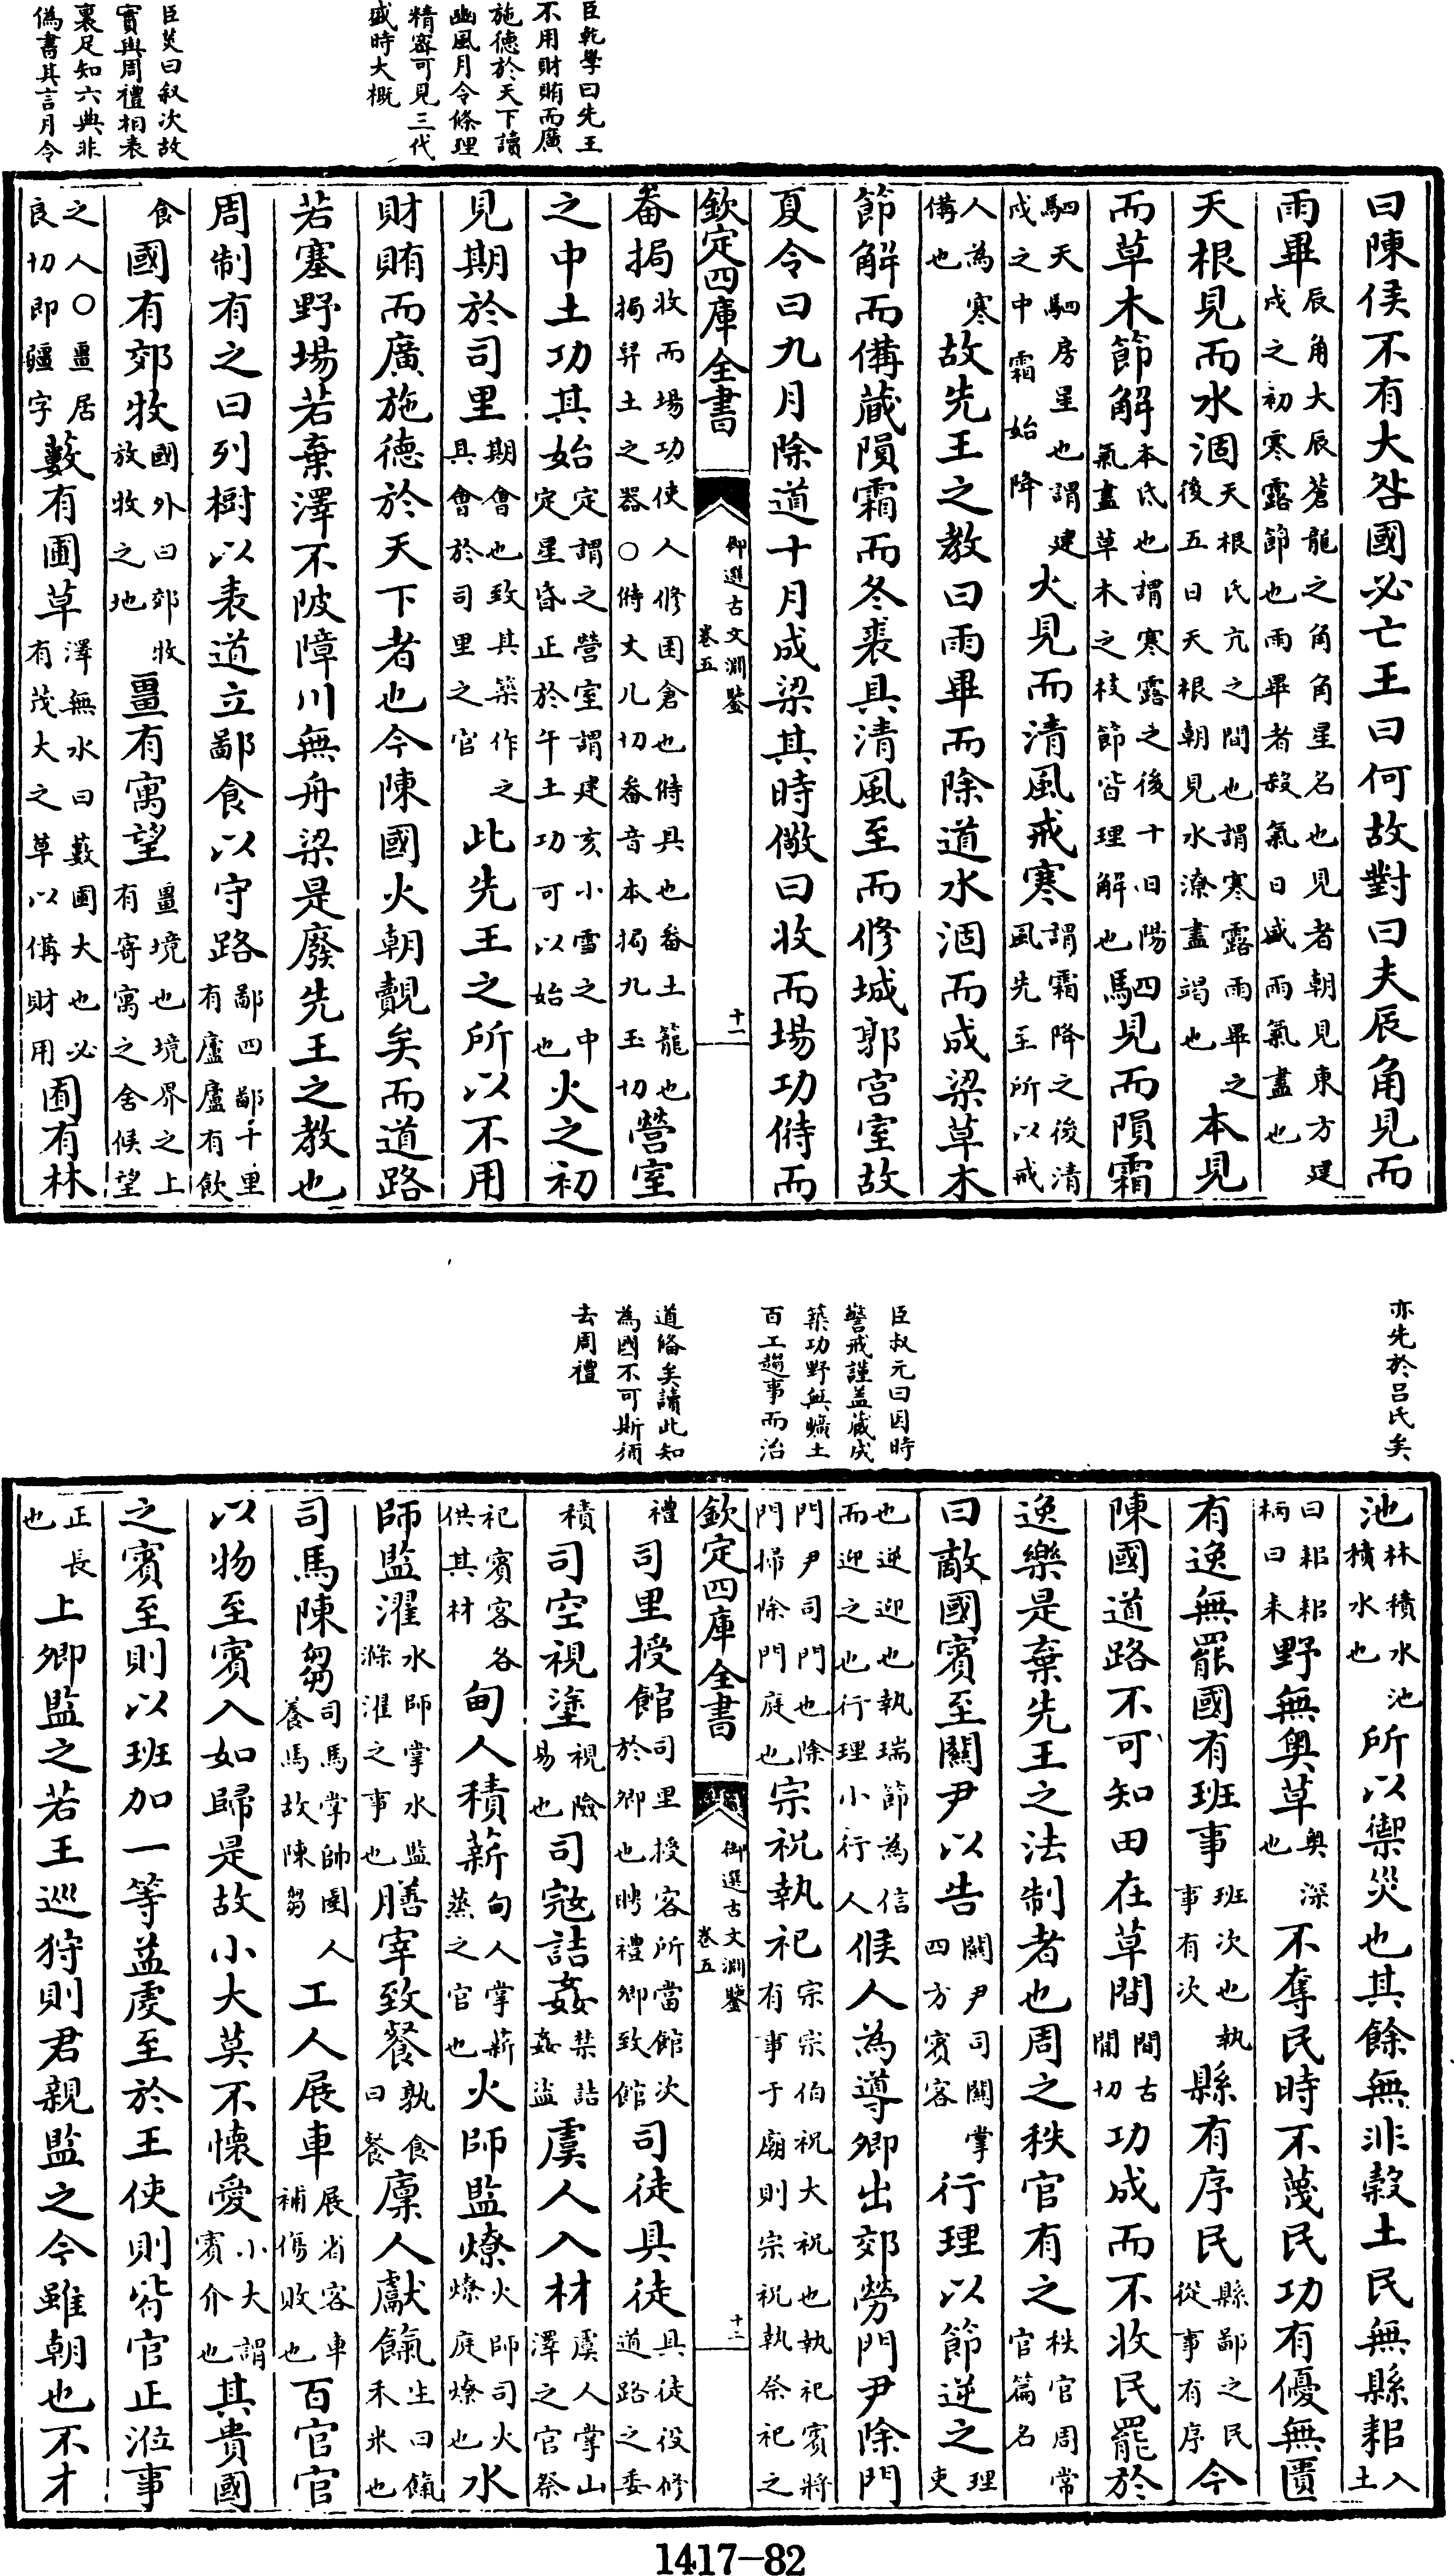 臣乾學曰先王
不用財賄而廣
施徳於天下讀
豳風月令條理
精密可見三代
盛時大概
臣英曰叙次故
實與周禮相表
裏足知六典非
偽書其言月令
曰陳侯不有大咎國必亡王曰何故對曰夫辰角見而
雨畢辰角大辰蒼龍之角角星名也見者朝見東方建戌之初寒露節也雨畢者殺氣日盛雨氣盡也
天根見而水涸天根氐亢之間也謂寒露雨畢之後五日天根朝見水潦盡竭也本見
而草木節解本氐也謂寒露之後十日陽氣盡草木之枝節皆理解也駟見而隕霜
駟天駟房星也謂建戌之中霜始降火見而清風戒寒謂霜降之後清風先至所以戒
人為寒備也故先王之教曰雨畢而除道水涸而成梁草木
節解而備藏隕霜而冬裘具清風至而修城郭宮室故
夏令曰九月除道十月成梁其時儆曰收而場功偫而
欽定四庫全書
御選古文淵鑒
卷五
十一
畚挶收而場功使人修囷倉也偫具也畚土籠也挶舁土之器○偫丈几切畚音本挶九玉切營室
之中土功其始定謂之營室謂建亥小雪之中定星昏正於午土功可以始也火之初
見期於司里期會也致其築作之具會於司里之官此先王之所以不用
財賄而廣施徳於天下者也今陳國火朝覿矣而道路
若塞野場若棄澤不陂障川無舟梁是廢先王之教也
周制有之曰列樹以表道立鄙食以守路鄙四鄙十里有廬廬有飲
食國有郊牧國外曰郊牧放牧之地畺有寓望畺境也境界之上有寄寓之舍候望
之人○畺居良切即疆字藪有圃草澤無水曰藪圃大也必有茂大之草以備財用囿有林
亦先於吕氏矣
臣叔元曰因時
警戒謹蓋藏成
築功野無曠土
百工趨事而治
道備矣讀此知
為國不可斯須
去周禮
池林積水池積水也所以禦災也其餘無非穀土民無縣耜入土
曰耜耜柄曰耒野無奥草奥深也不奪民時不蔑民功有優無匱
有逸無罷國有班事班次也執事有次縣有序民縣鄙之民從事有序今
陳國道路不可知田在草間間古閒切功成而不收民罷於
逸樂是棄先王之法制者也周之秩官有之秩官周常官篇名
曰敵國賓至關尹以告關尹司關掌四方賓客行理以節逆之理吏
也逆迎也執瑞節為信而迎之也行理小行人候人為導卿出郊勞門尹除門
門尹司門也除門掃除門庭也宗祝執祀宗宗伯祝大祝也執祀賓將有事于廟則宗祝執祭祀之
欽定四庫全書
御選古文淵鑒
卷五
十二
禮司里授館司里授客所當館次於卿也聘禮卿致館司徒具徒具徒役修道路之委
積司空視塗視險易也司寇詰姦禁詰姦盗虞人入材虞人掌山澤之官祭
祀賓客各供其材甸人積薪甸人掌薪蒸之官也火師監燎火師司火燎庭燎也水
師監濯水師掌水監滌濯之事也膳宰致餐孰食曰餐廩人獻餼生曰餼禾米也
司馬陳芻司馬掌帥圉人養馬故陳芻工人展車展省客車補傷敗也百官官
以物至賓入如歸是故小大莫不懷愛小大謂賓介也其貴國
之賓至則以班加一等益虔至於王使則皆官正涖事
正長也上卿監之若王巡狩則君親監之今雖朝也不才
1417-82